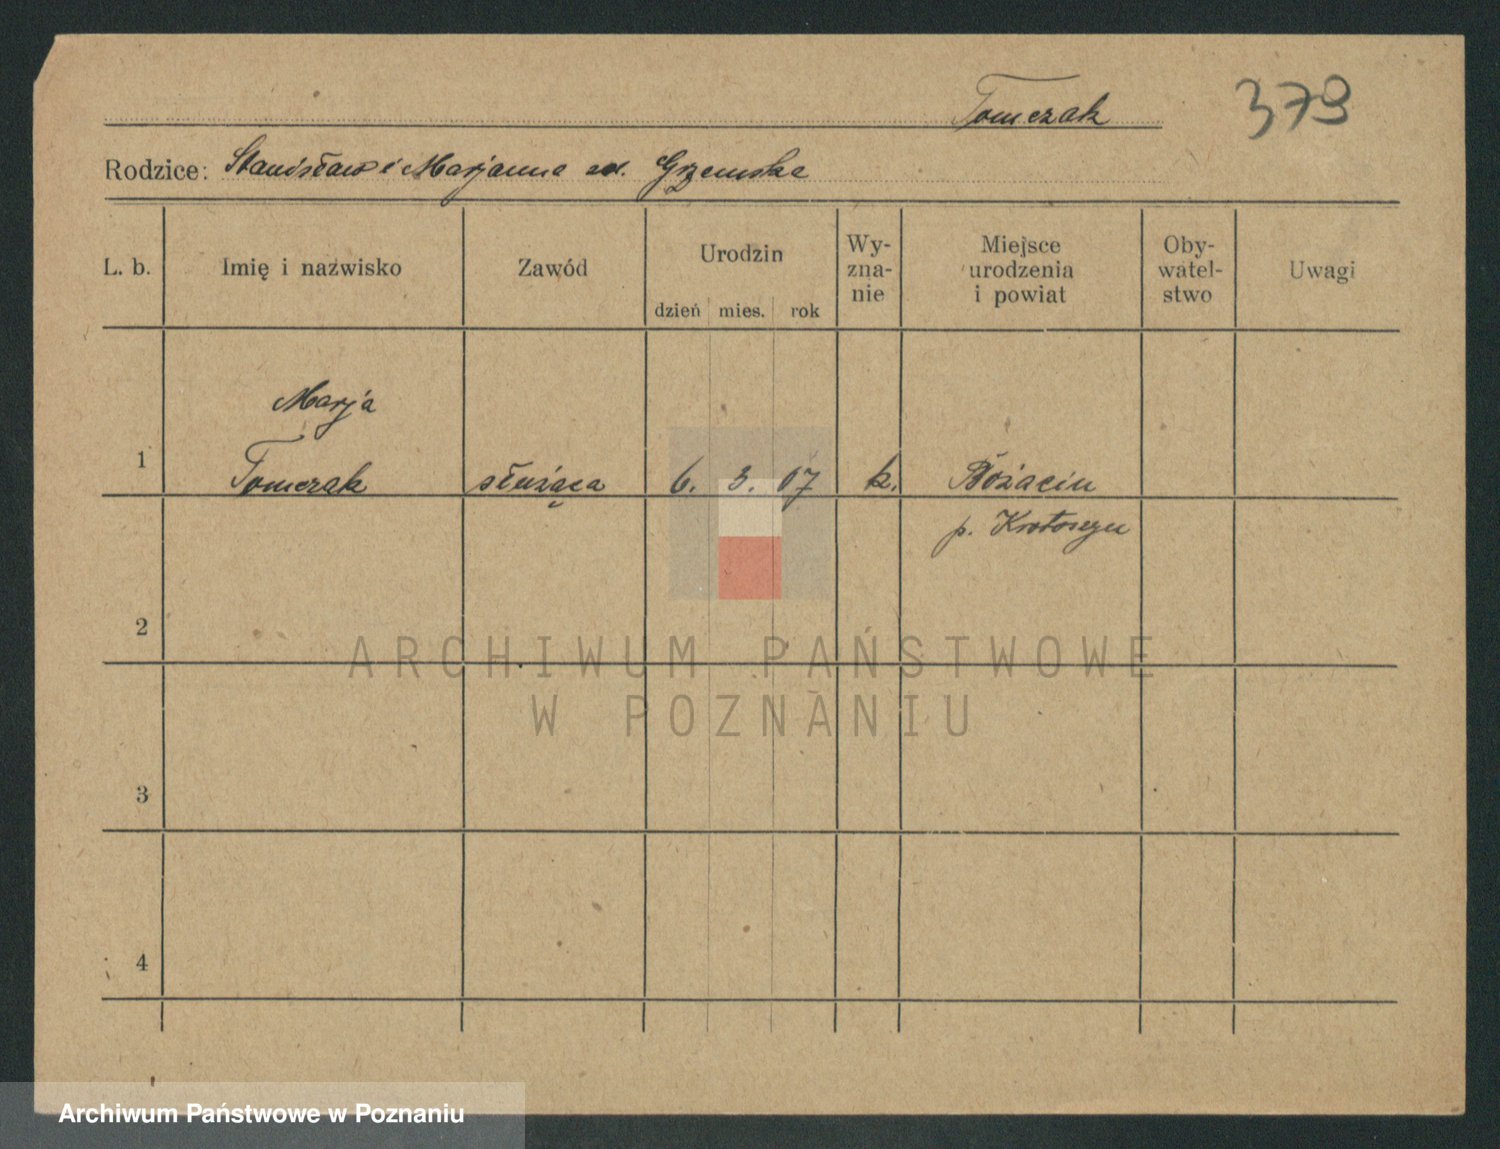 Tomczak 379
Rodzice: Stanisław i Marjanna zd. Grzemska
L. b. Imię i nazwisko Zawód Urodzin dzień mies. rok Wy-zna-nie Miejsce urodzenia i powiat Oby-watel-stwo Uwagi
Marja
1 Tomczak służąca 6. 3. 07 k. Bożacin
p. Krotoszyn
2
ARCHIWUM PAŃSTWOWE
W POZNANIU
3
4
Archiwum Państwowe w Poznaniu